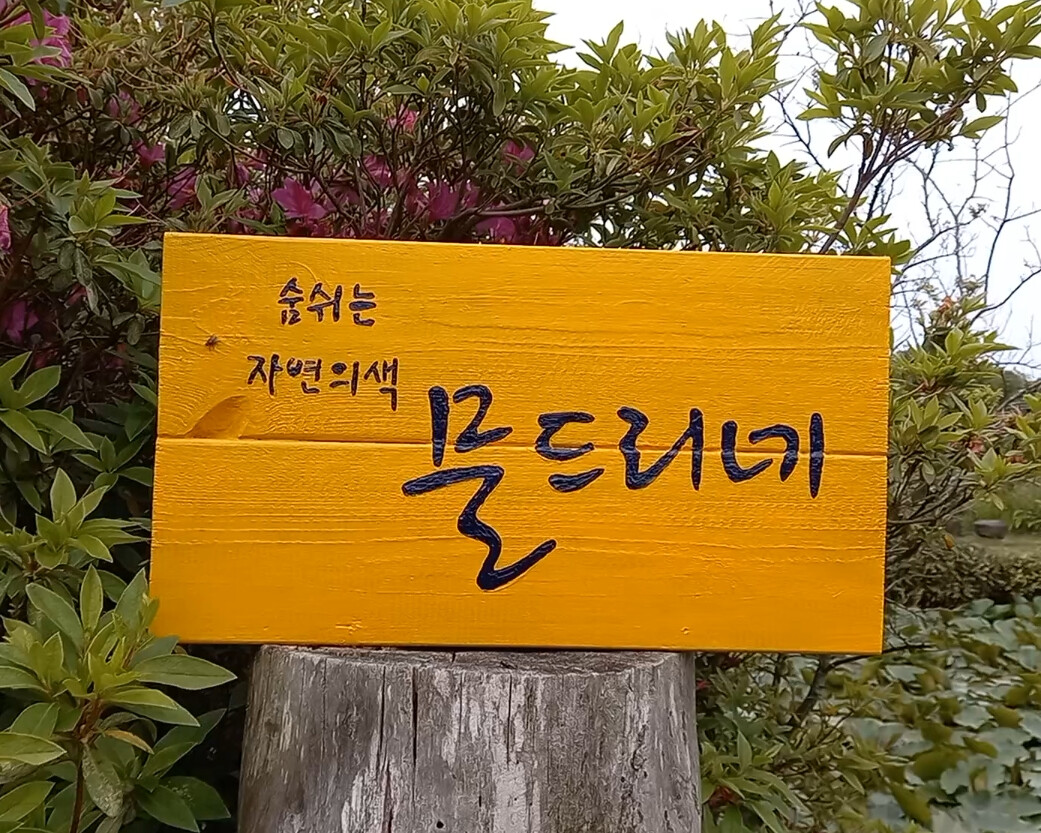 숨쉬는
자연의색
물드리네